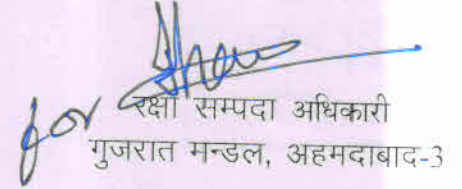 for
रक्षा सम्पदा अधिकारी
गुजरात मन्डल, अहमदाबाद-3